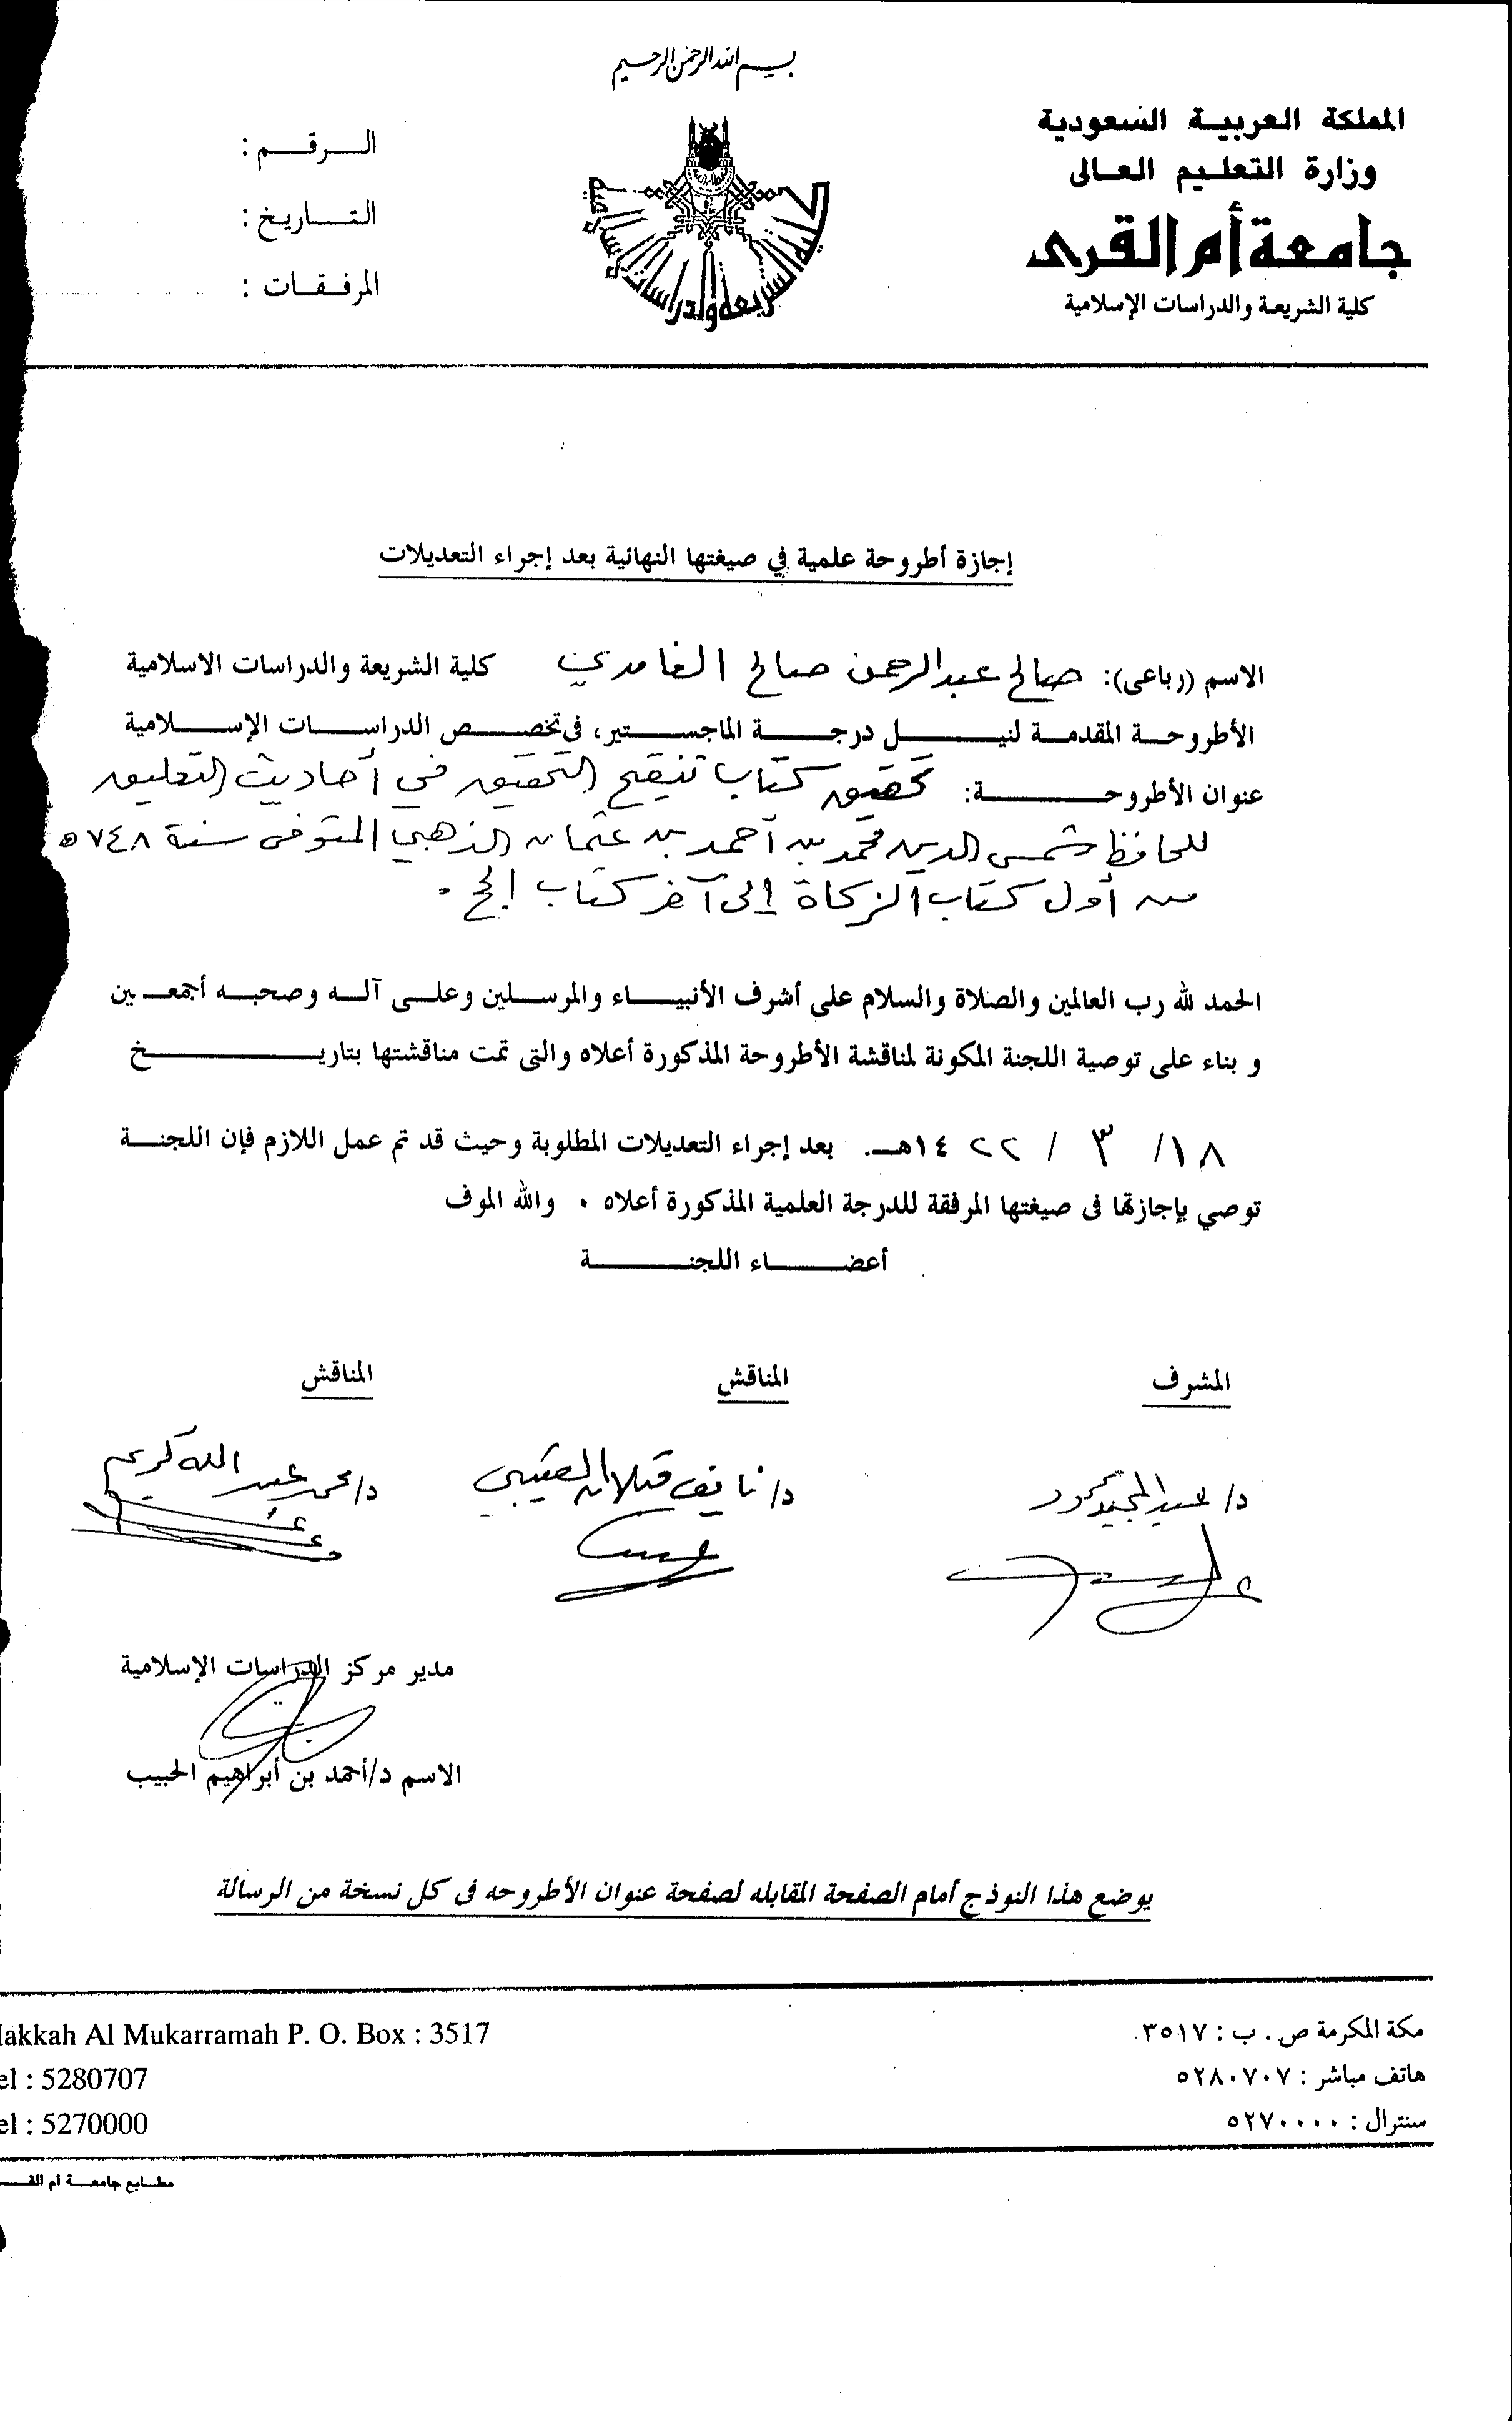 بسم الله الرحمن الرحيم
المملكة العربية السعودية
وزارة التعليم العالى
جامعة أم القرى
كلية الشريعة والدراسات الإسلامية
الرقم :
التاريخ :
المرفقات :
إجازة أطروحة علمية في صيغتها النهائية بعد إجراء التعديلات
الاسم (رباعى): صالح عبدالرحمن صالح الغامدي كلية الشريعة والدراسات الاسلامية
الأطروحة المقدمة لنيل درجة الماجستير، في تخصص الدراسات الإسلامية
عنوان الأطروحة: تحقيق كتاب تنقيح التحقيق في أحاديث التعليق
للحافظ شمس الدين محمد بن أحمد بن عثمان الذهبي المتوفى سنة ٧٤٨ه
من أول كتاب الزكاة إلى آخر كتاب الحج .
الحمد لله رب العالمين والصلاة والسلام على أشرف الأنبياء والمرسلين وعلى آله وصحبه أجمعين
و بناء على توصية اللجنة المكونة لمناقشة الأطروحة المذكورة أعلاه والتى تمت مناقشتها بتاريخ
١٨/ ٣ / ١٤٢٢هـ. بعد إجراء التعديلات المطلوبة وحيث قد تم عمل اللازم فإن اللجنة
توصي بإجازتها فى صيغتها المرفقة للدرجة العلمية المذكورة أعلاه . والله الموف
أعضاء اللجنة
المشرف المناقش المناقش
د/ عبدالمجيد محمود د/ نايف قبلان العتيبي د/ محمد عبد الله كريم
مدير مركز الدراسات الإسلامية
الاسم د/أحمد بن أبراهيم الحبيب
يوضع هذا النوذج أمام الصفحة المقابله لصفحة عنوان الأطروحه فى كل نسخة من الرسالة
مكة المكرمة ص . ب : ٣٥١٧
هاتف مباشر : ٥٢٨٠٧٠٧
سنترال : ٥٢٧٠٠٠٠
akkah Al Mukarramah P. O. Box : 3517
el : 5280707
el : 5270000
مطابع جامعة أم القـ